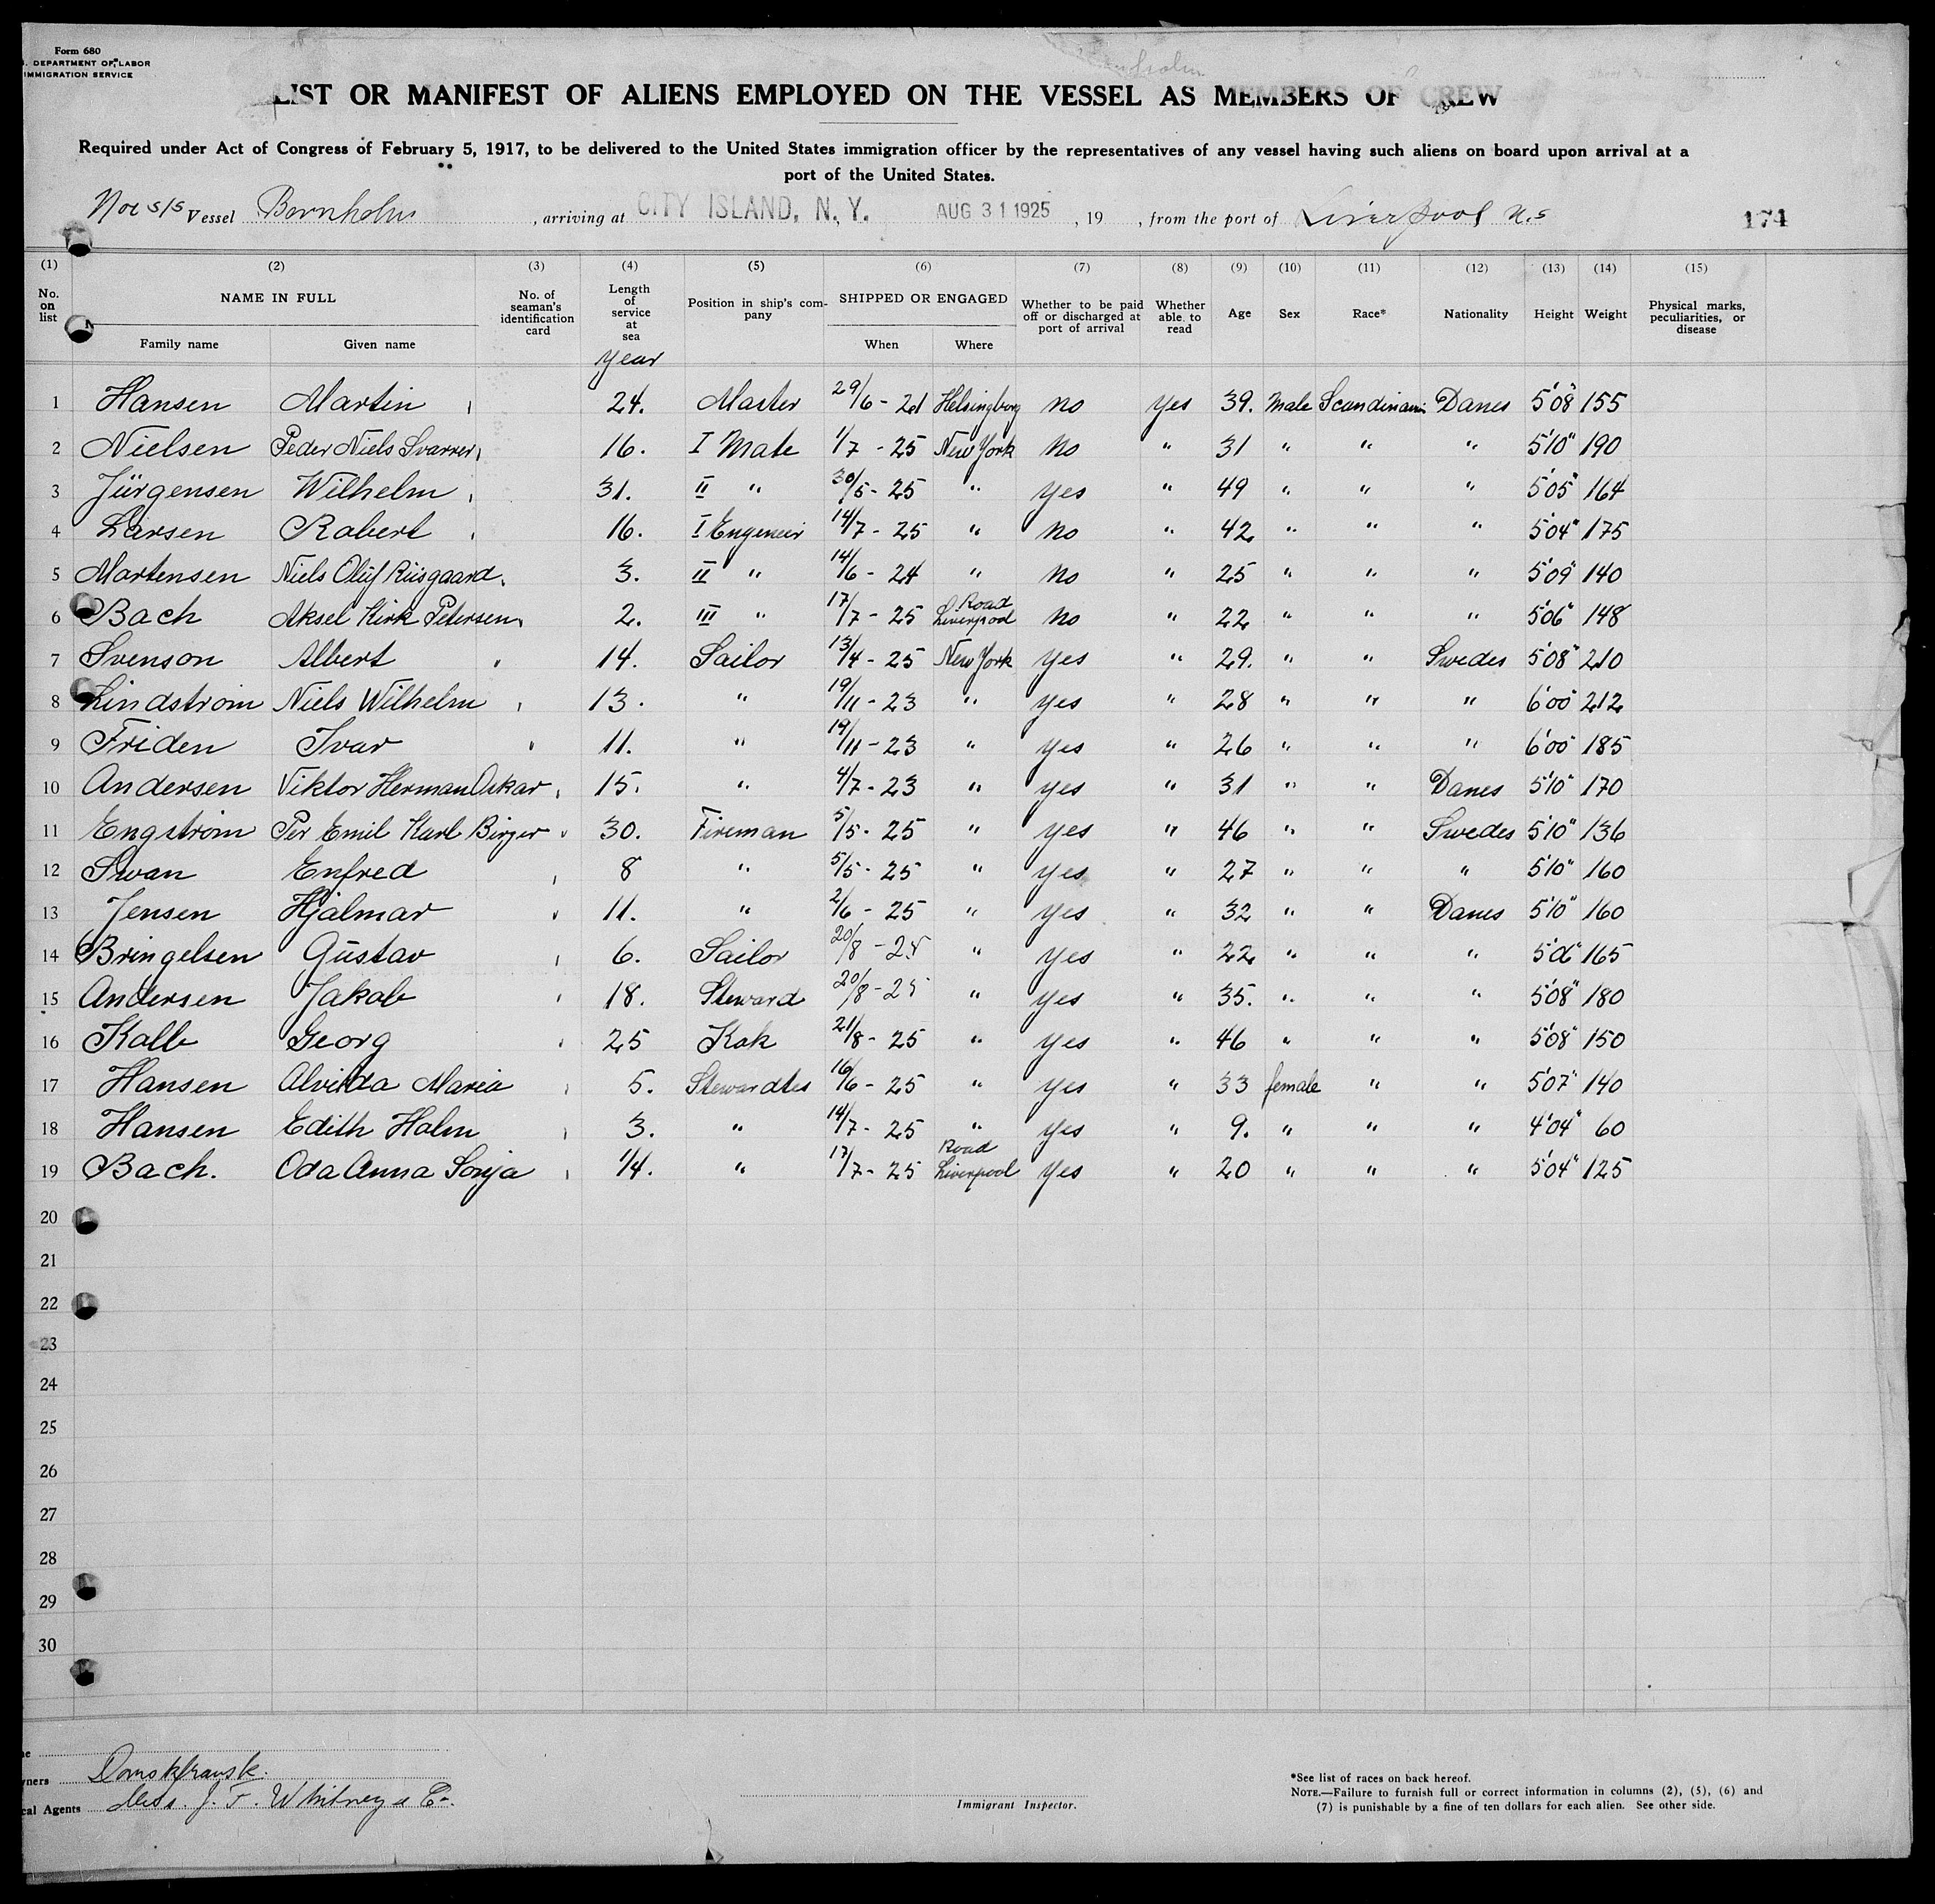 Form 680
. DEPARTMENT OF LABOR
IMMIGRATION SERVICE
LIST OR MANIFEST OF ALIENS EMPLOYED ON THE VESSEL AS MEMBERS OF CREW
Required under Act of Congress of February 5, 1917, to be delivered to the United States immigration officer by the representatives of any vessel having such aliens on board upon arrival at a
port of the United States.
Nor S/S Vessel Bornholm , arriving at CITY ISLAND, N. Y. AUG 31 1925 , 19 , from the port of Liverpool N.S 174
(1) (2) (3) (4) (5) (6) (7) (8) (9) (10) (11) (12) (13) (14) (15)
No. on list NAME IN FULL Family name Given name No. of seaman's identification card Length of service at sea year Position in ship's company SHIPPED OR ENGAGED When Where Whether to be paid off or discharged at port of arrival Whether able to read Age Sex Race* Nationality Height Weight Physical marks, peculiarities, or disease
1 Hansen Martin 24. Master 29/6 - 21 Helsingborg no yes 39. Male Scandinavi Danes 5'08" 155
2 Nielsen Peder Niels Svarrer 16. I Mate 1/7 - 25 New York No " 31 " " " 5'10" 190
3 Jürgensen Wilhelm 31. II " 30/5 - 25 " yes " 49 " " " 5'05" 164
4 Larsen Robert 16. I Engeneir 14/7 - 25 " No " 42 " " " 5'04" 175
5 Mortensen Niels Oluf Riisgaard 3. II " 14/6 - 24 " No " 25 " " " 5'09" 140
6 Bach Aksel Kirk Petersen 2. III " 17/7 - 25 Road Liverpool No " 22 " " " 5'06" 148
7 Svenson Albert 14. Sailor 13/4 - 25 New York yes " 29. " " Swedes 5'08" 210
8 Lindstrom Niels Wilhelm 13. " 19/11 - 23 " yes " 28 " " " 6'00" 212
9 Friden Ivar 11. " 19/11 - 23 " yes " 26 " " " 6'00" 185
10 Andersen Viktor Herman Oskar 15. " 4/7 - 23 " yes " 31 " " Danes 5'10" 170
11 Engstrom Per Emil Karl Birger 30. Fireman 5/5 - 25 " yes " 46 " " Swedes 5'10" 136
12 Swan Enfred 8 " 5/5 - 25 " yes " 27 " " " 5'10" 160
13 Jensen Hjalmar 11. " 2/6 - 25 " yes " 32 " " Danes 5'10" 160
14 Bringelsen Gustav 6. Sailor 20/8 - 25 " yes " 22 " " " 5'06" 165
15 Andersen Jakob 18. Steward 20/8 - 25 " yes " 35. " " " 5'08" 180
16 Kalb Georg 25 Kok 21/8 - 25 " yes " 46 " " " 5'08" 150
17 Hansen Alvilda Maria 5. Stewardtes 16/6 - 25 " yes " 33 female " " 5'07" 140
18 Hansen Edith Holm 3. " 14/7 - 25 " yes " 9. " " " 4'04" 60
19 Bach. Oda Anna Sonja 1/4. " 17/7 - 25 Road Liverpool yes " 20 " " " 5'04" 125
20
21
22
23
24
25
26
27
28
29
30
ners
cal Agents Mess. J. F. Whitney & Co.
Immigrant Inspector.
*See list of races on back hereof.
NOTE.—Failure to furnish full or correct information in columns (2), (5), (6) and
(7) is punishable by a fine of ten dollars for each alien. See other side.